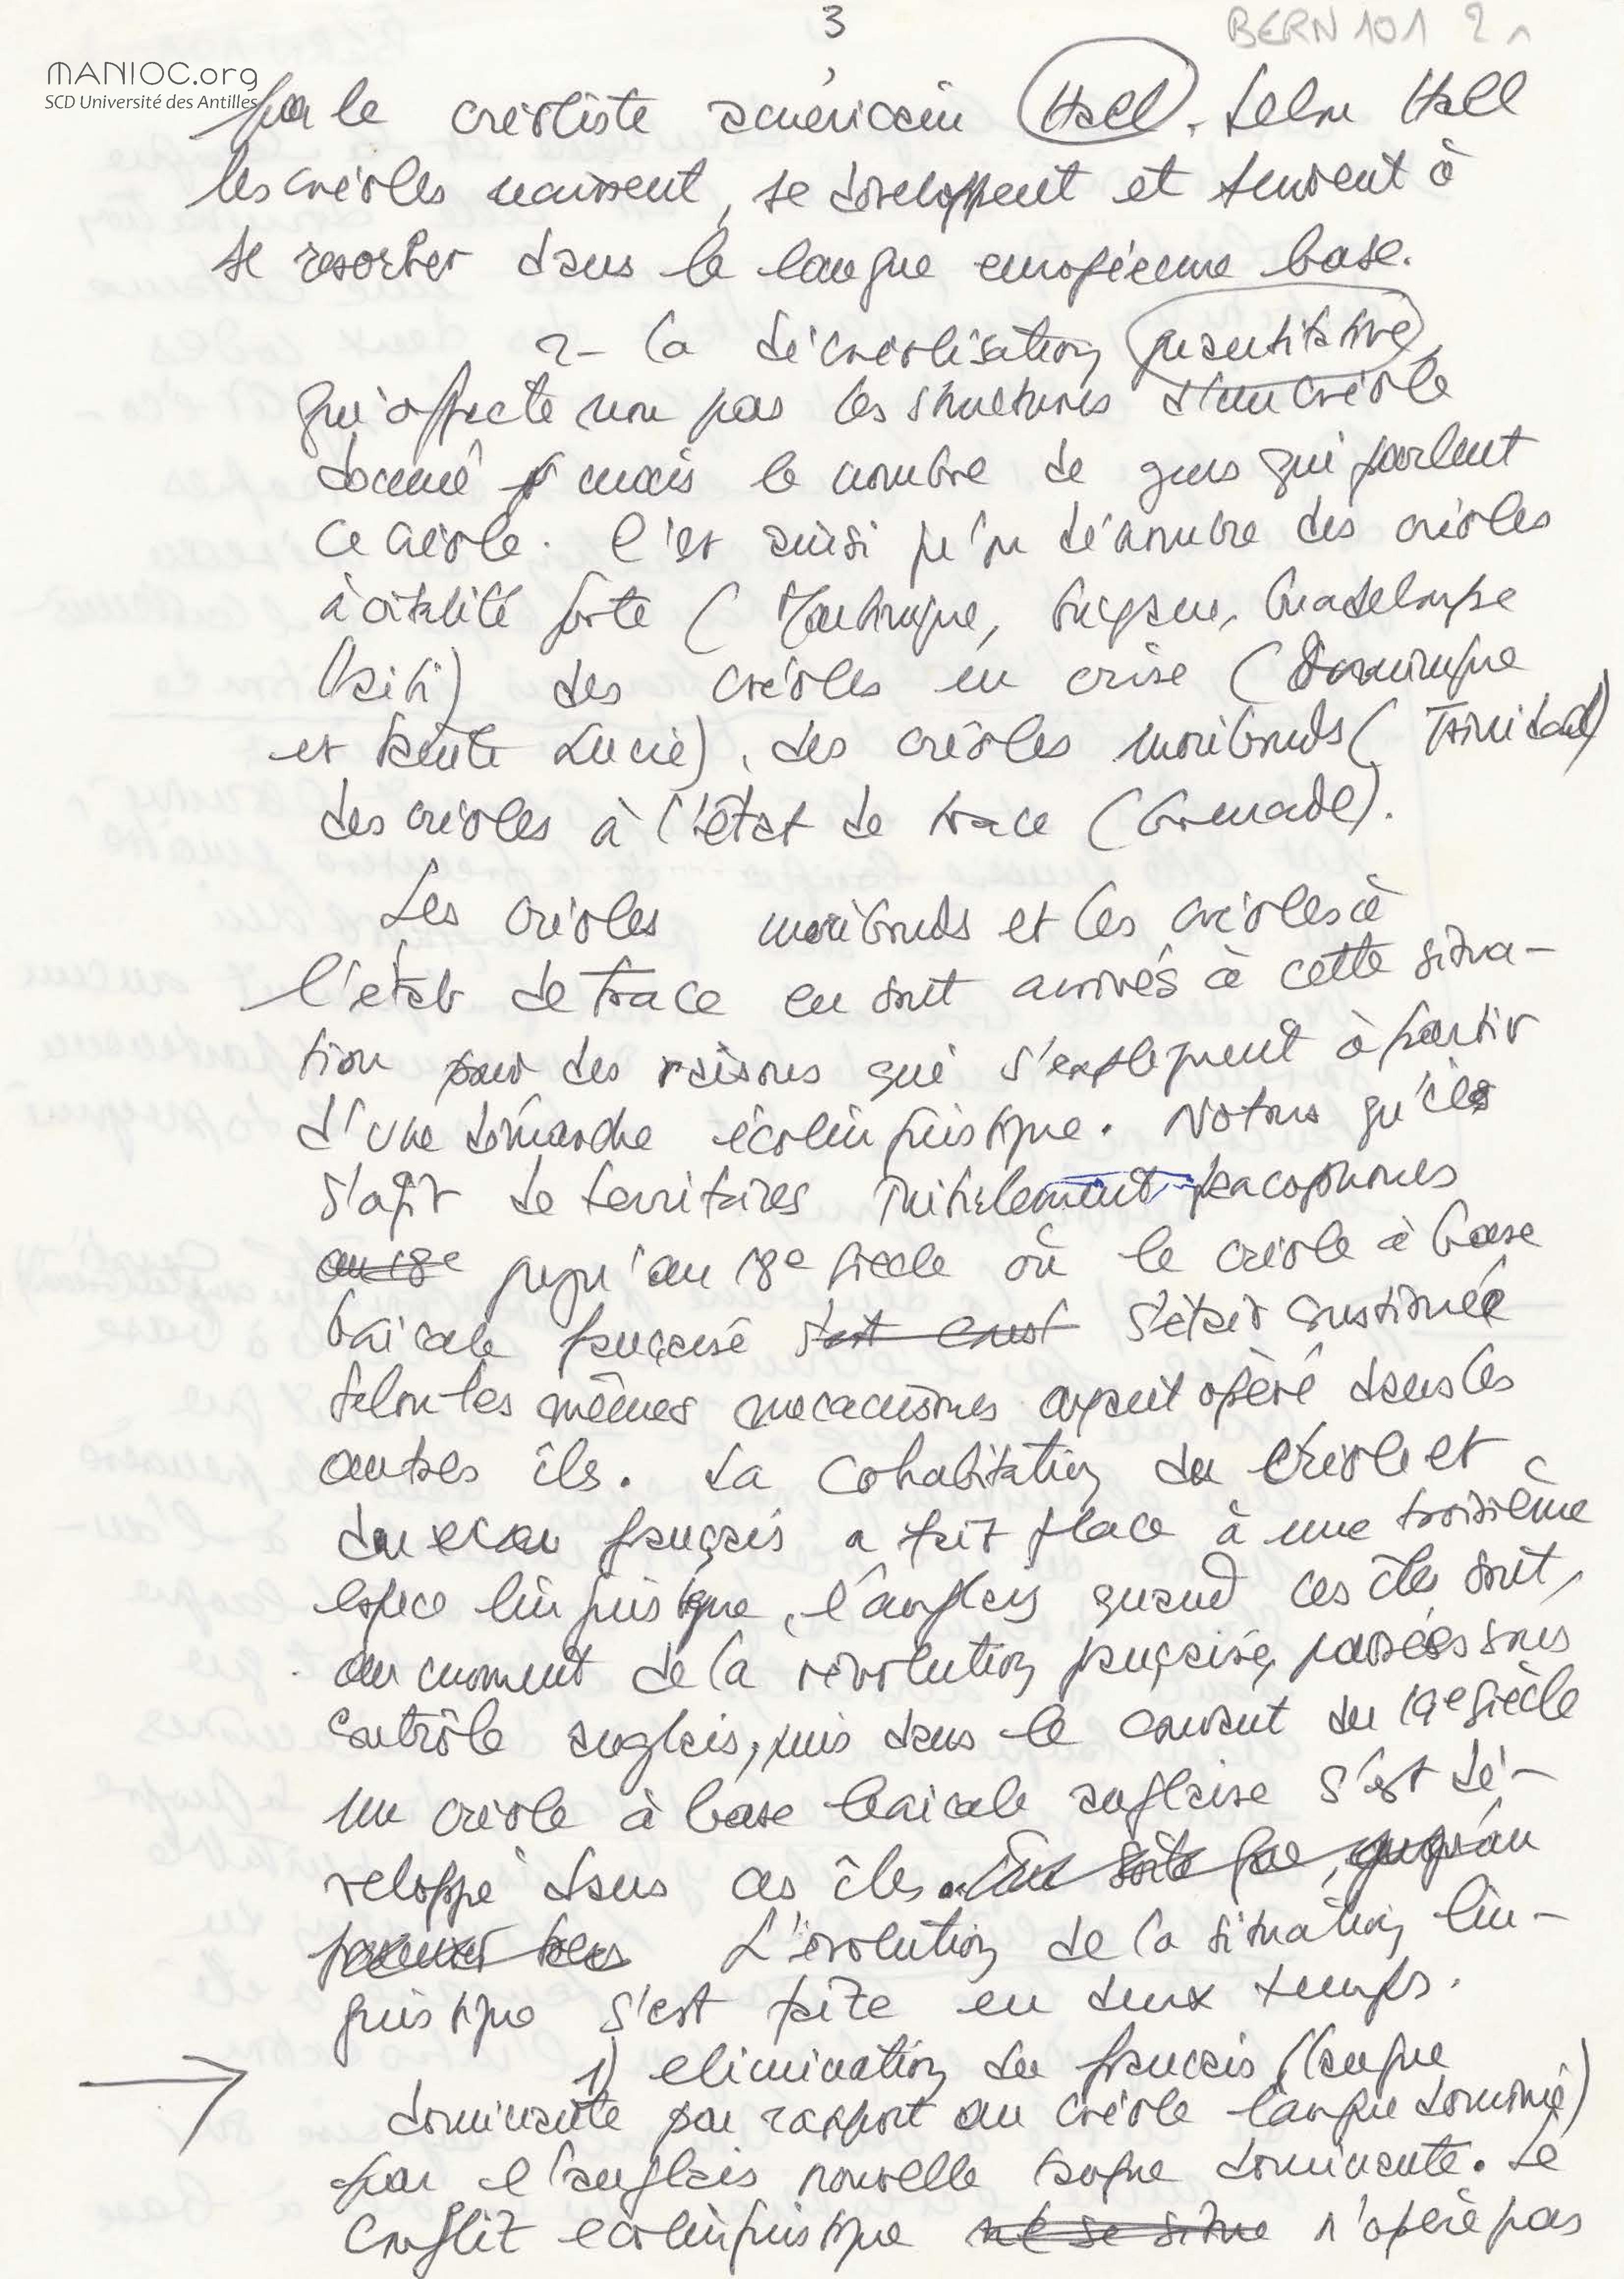 3
BERN 101 2
MANIOC.org
SCD Université des Antilles
par le créoliste américain Hall. Selon Hall
les créoles naissent, se développent et tendent à
se résorber dans la langue européenne base.
2- la décréolisation quantitative
qui affecte non pas les structures d'un créole
donné mais le nombre de gens qui parlent
ce créole. C'est ainsi qu'on dénombre des créoles
à vitalité forte (Martinique, Guyane, Guadeloupe
Haïti) des créoles en crise (Dominique
et Sainte Lucie), des créoles moribonds (Trinidad)
des créoles à l'état de trace (Grenade).
Les créoles moribonds et les créoles à
l'état de trace en sont arrivés à cette situa-
tion pour des raisons qui s'expliquent à partir
d'une démarche écolinguistique. Notons qu'il
s'agit de territoires initialement francophones
au 18e jusqu'au 18e siècle où le créole à base
lexicale française s'était constituée
selon les mêmes mécanismes ayant opéré dans les
autres îles. La cohabitation du créole et
du français a fait place à une troisième
espèce linguistique, l'anglais quand ces îles sont,
au moment de la révolution française, passées sous
contrôle anglais, puis dans le courant du 19e siècle
un créole à base lexicale anglaise s'est dé-
veloppé dans ces îles. Une sorte que, jusqu'au
premier L'évolution de la situation lin-
guistique s'est faite en deux temps.
1) elimination du français (langue
dominante par rapport au créole langue dominée)
par l'anglais nouvelle langue dominante. Le
conflit écolinguistique ne se situe n'opère pas